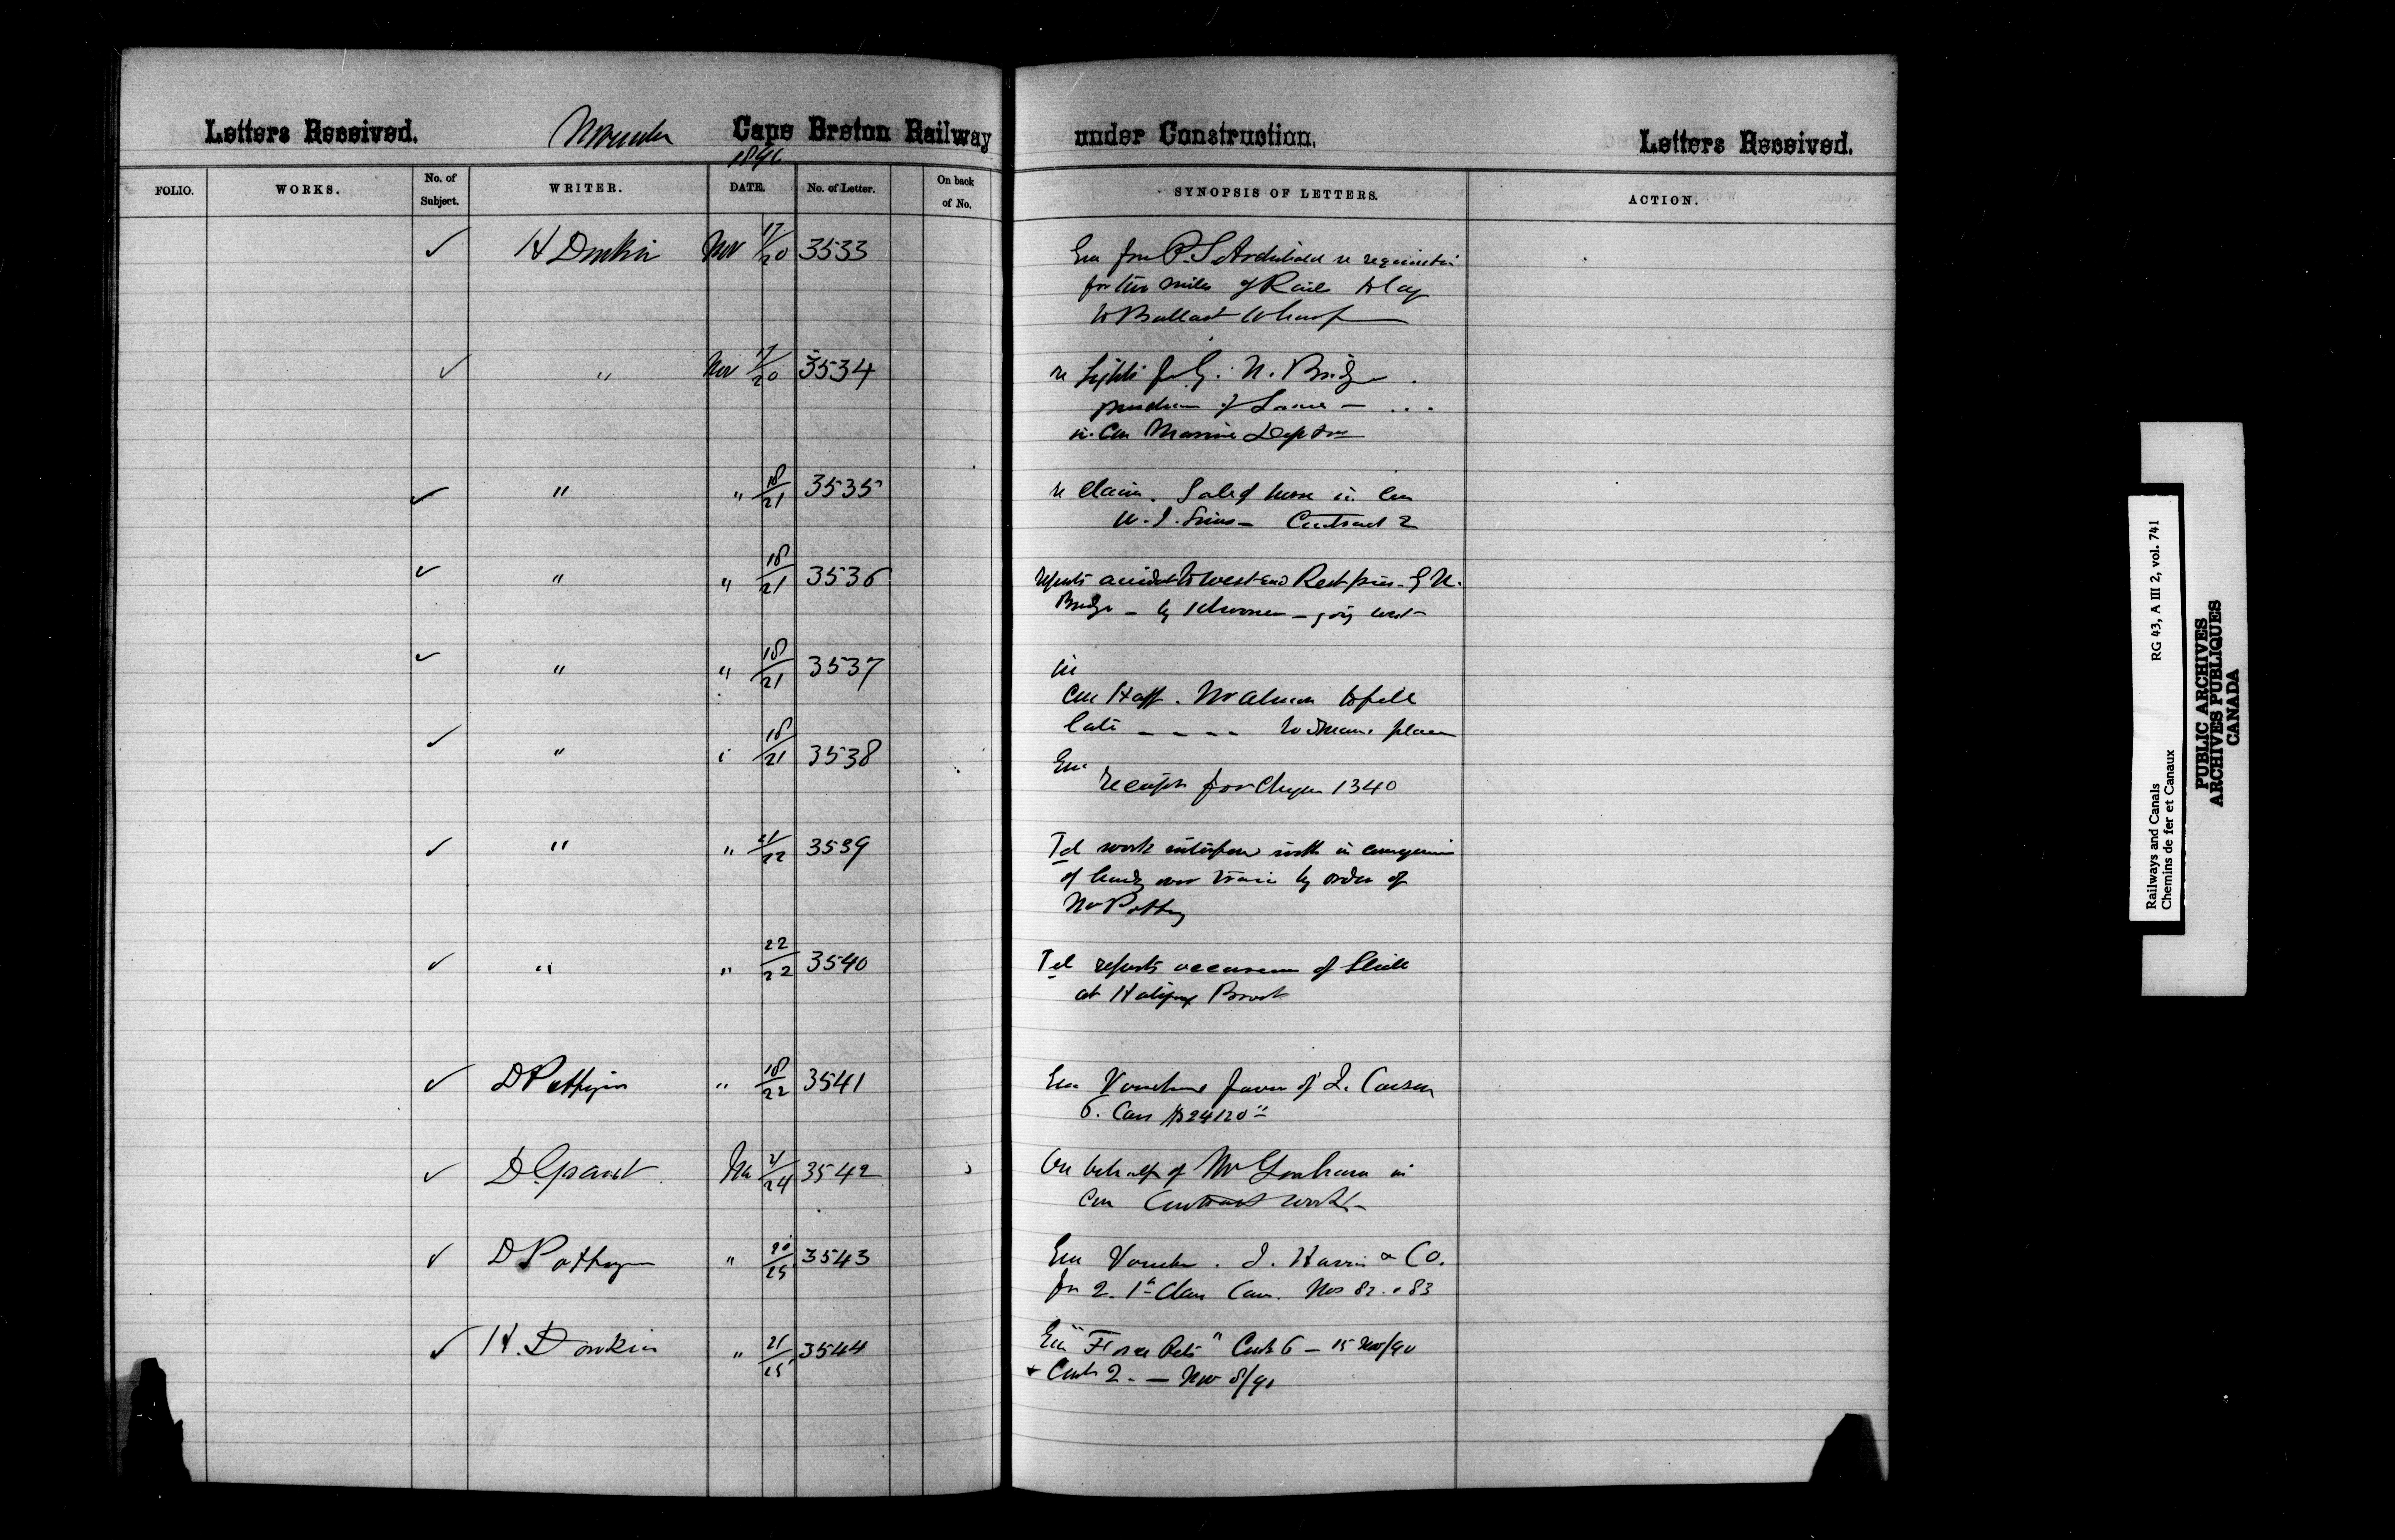 Letters Received. November Cape Breton Railway under Construction. Letters Received.
1890
FOLIO. WORKS. No. of Subject. WRITER. DATE. No. of Letter. On back of No. SYNOPSIS OF LETTERS. ACTION.
✓ H Donkin Nov 17/20 3533 Enc from P. S. Archibald re requisition
for two miles of Rails to lay
to Ballast Wharf
✓ " Nov 17/20 3534 re Lights for G. N. Bridge
purchase of Same —
in con Marine Dept
✓ " " 18/21 3535 re Claim. Sale of horse in Con
Sims — Contract 2
✓ " " 18/21 3536 reports accident to West End Rest pier. G N.
Bridge — by schooner — going west
✓ " " 18/21 3537 in
Con Staff. to fill
late place
✓ " " 18/21 3538 Enc
receipts for Cheque 1340
✓ " " 21/22 3539 Tel work interfered with in
of over train by order of
Mr Pottinger
✓ " " 22/22 3540 Tel reports of Slide
at
✓ D Pottinger " 18/22 3541 Enc Vouchers favor of J. Crossen
6. Cars $24120
✓ D. Grant Nov 21/24 3542 On behalf of Mr in
Con Contract work —
✓ D Pottinger " 20/25 3543 Enc Voucher. J. Harris & Co.
for 2. 1st Class Cars. Nos 82. & 83
✓ H. Donkin " 21/25 3544 Enc "Force Rets" Cont 6 — 15 Nov/90
& Cont 2. — Nov 8/90
Railways and Canals RG 43, A III 2, vol. 741
Chemins de fer et Canaux
PUBLIC ARCHIVES
ARCHIVES PUBLIQUES
CANADA